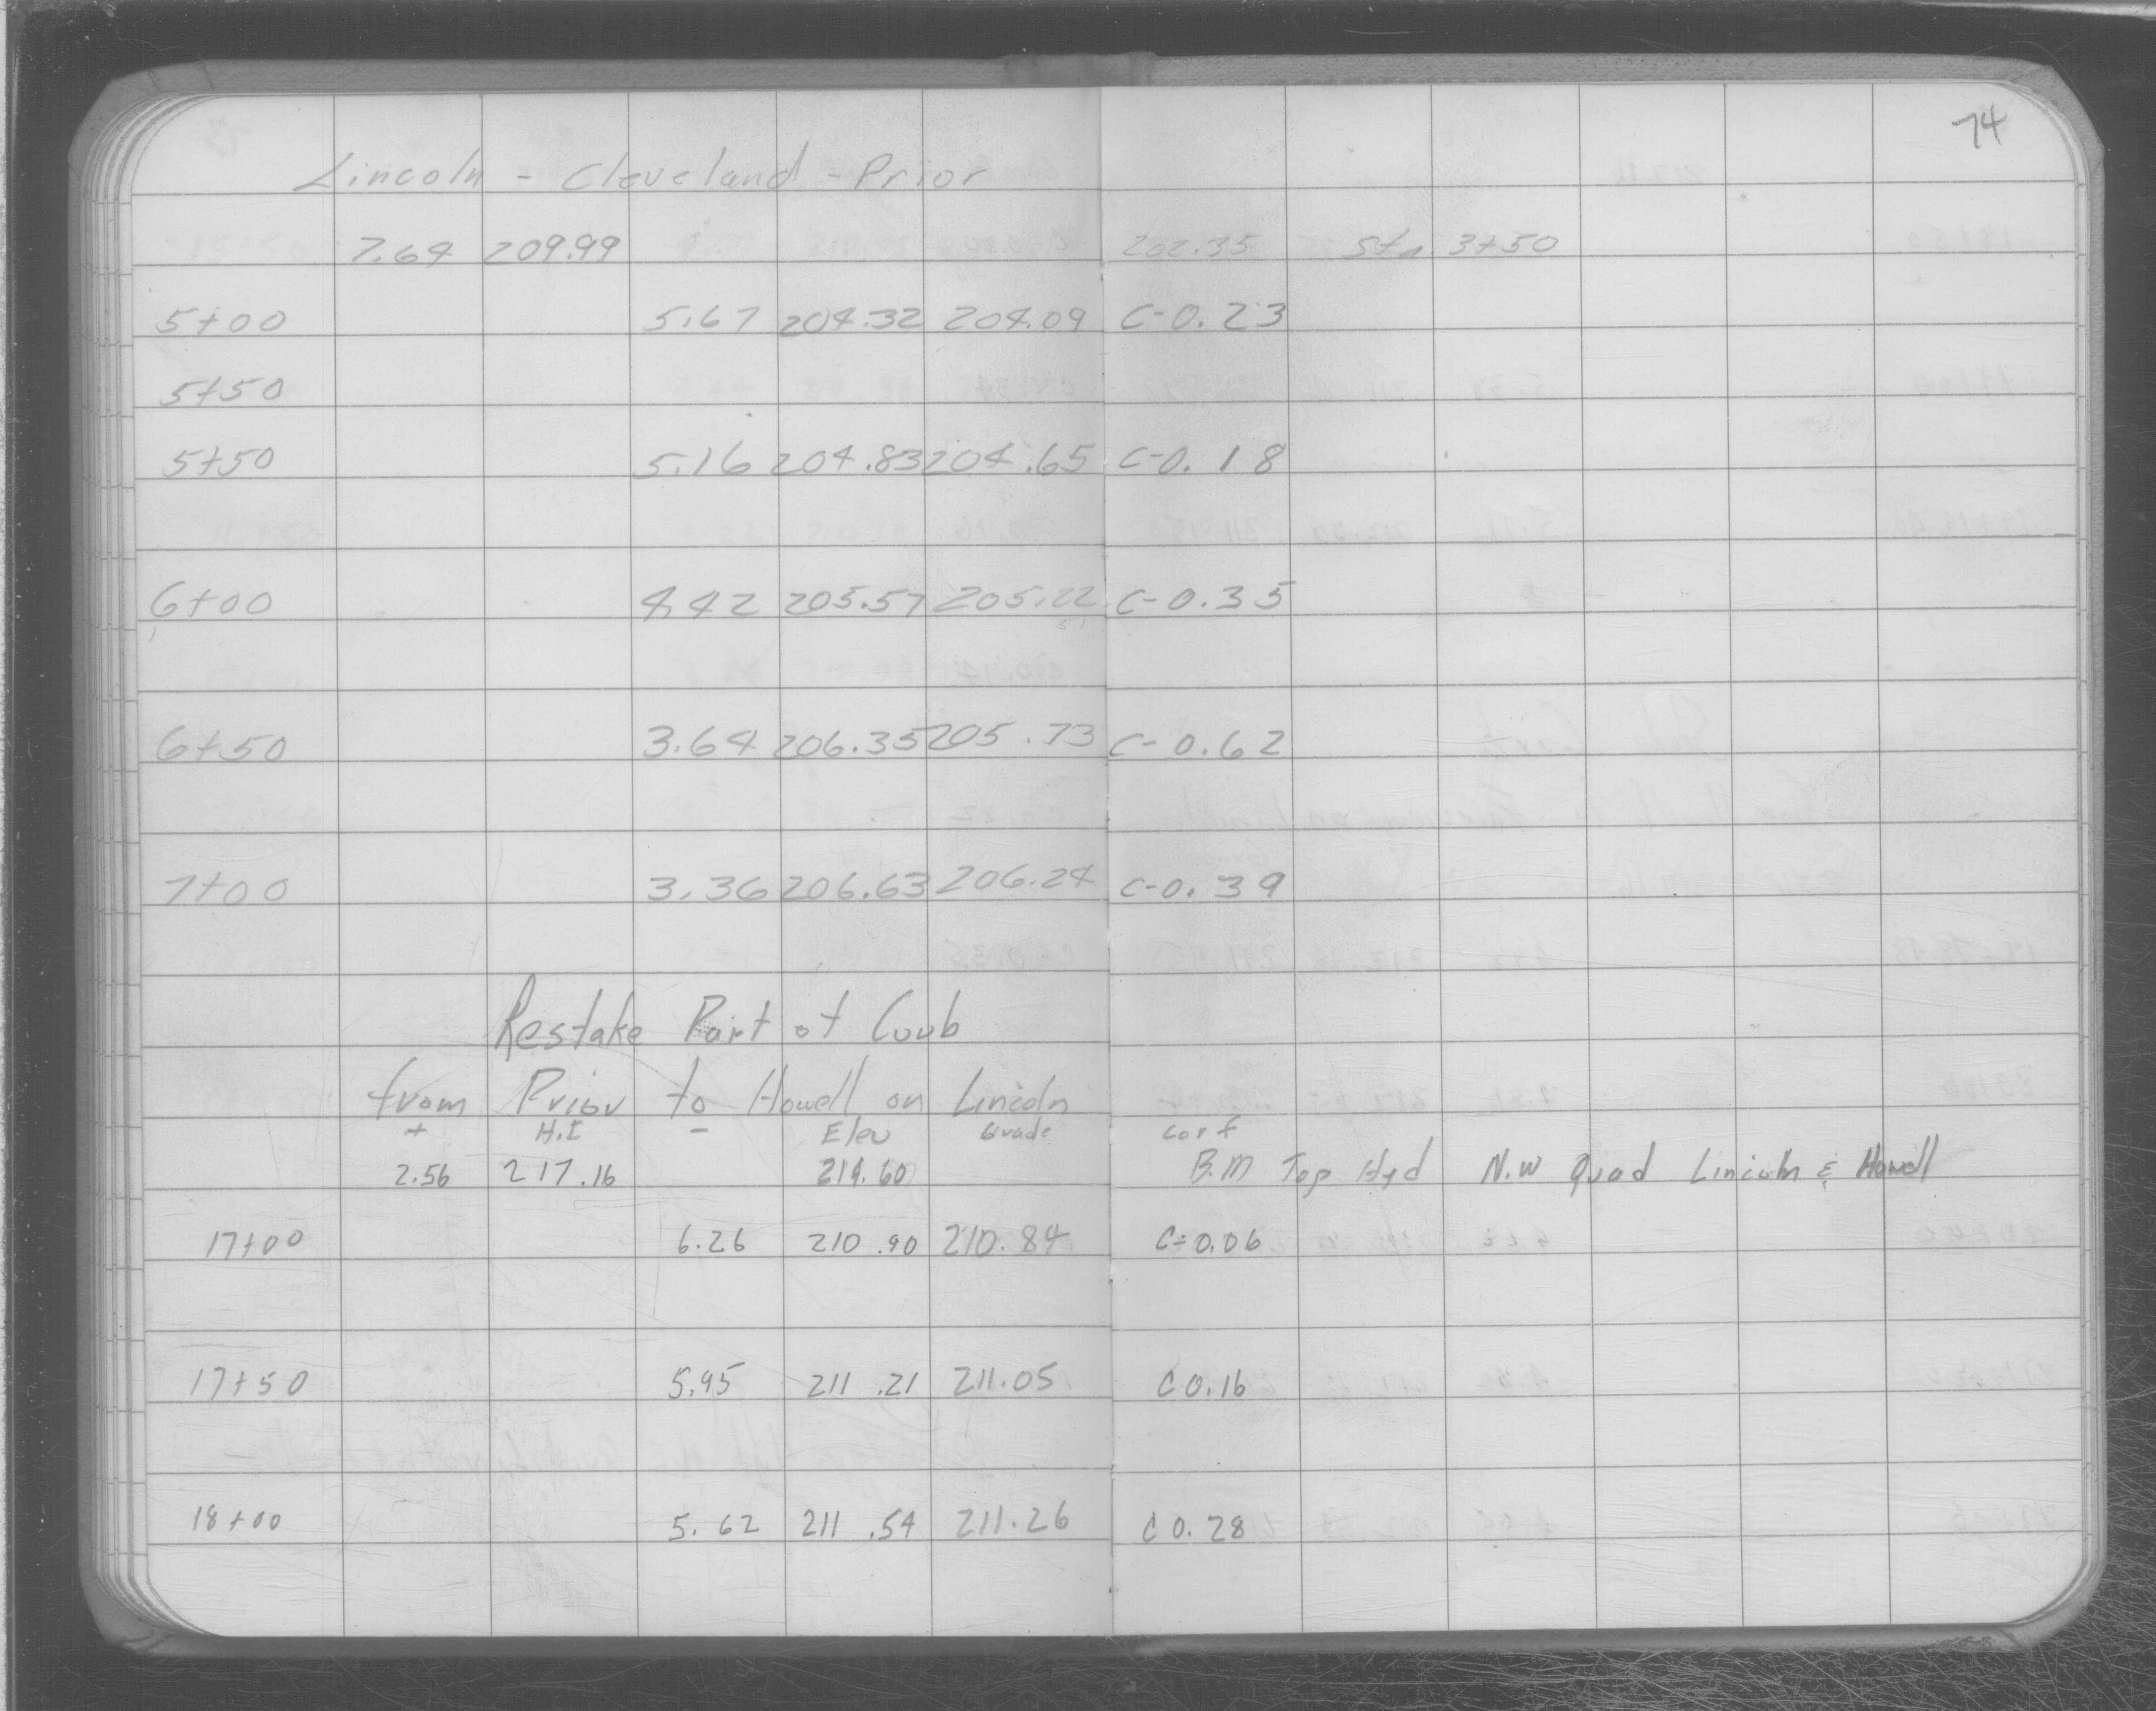 74
Lincoln - Cleveland - Prior
7.64 209.99 202.35 Sta. 3+50
5+00 5.67 204.32 204.09 C-0.23
5+50
5+50 5.16 204.83 204.65 C-0.18
6+00 4.42 205.57 205.22 C-0.35
51
6+50 3.64 206.35 205.73 C-0.62
7+00 3.36 206.63 206.24 C-0.39
Restake Part of Curb
from Prior to Howell on Lincoln
+ H.I - Elev Grade C or F
2.56 217.16 214.60 B.M Top Hyd N.W Quad Lincoln & Howell
17+00 6.26 210.90 210.84 C-0.06
17+50 5.95 211.21 211.05 C 0.16
18+00 5.62 211.54 211.26 C 0.28